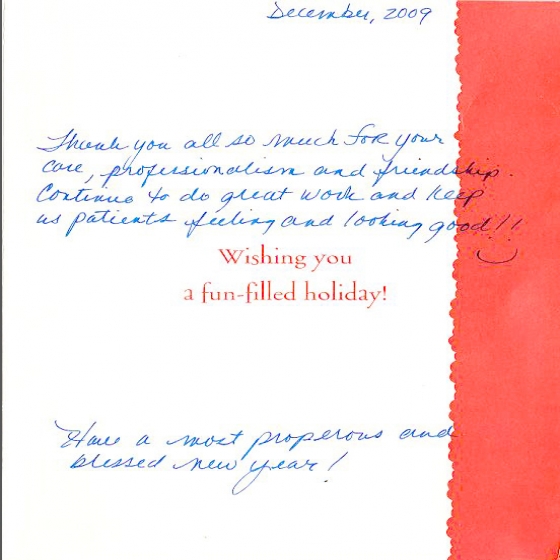 December, 2009
Thank you all so much for your
care, professionalism and friendship.
Continue to do great work and keep
us patients feeling and looking good!!
Wishing you
a fun-filled holiday!
Have a most properous and
blessed new year!